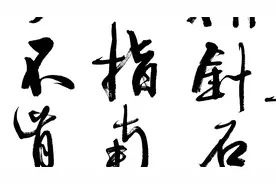 針石
指南
不肯